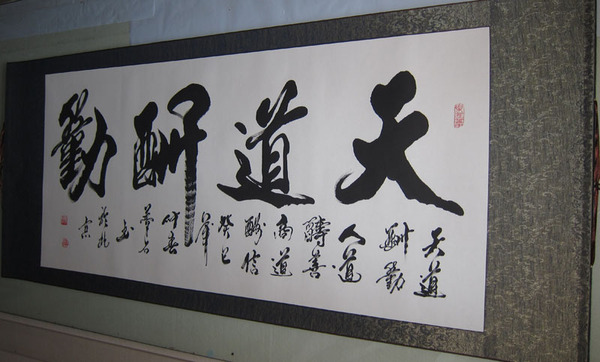 天道酬勤
天道
酬勤
人道
酬善
商道
酬信
癸巳
仲春
书
於北
京